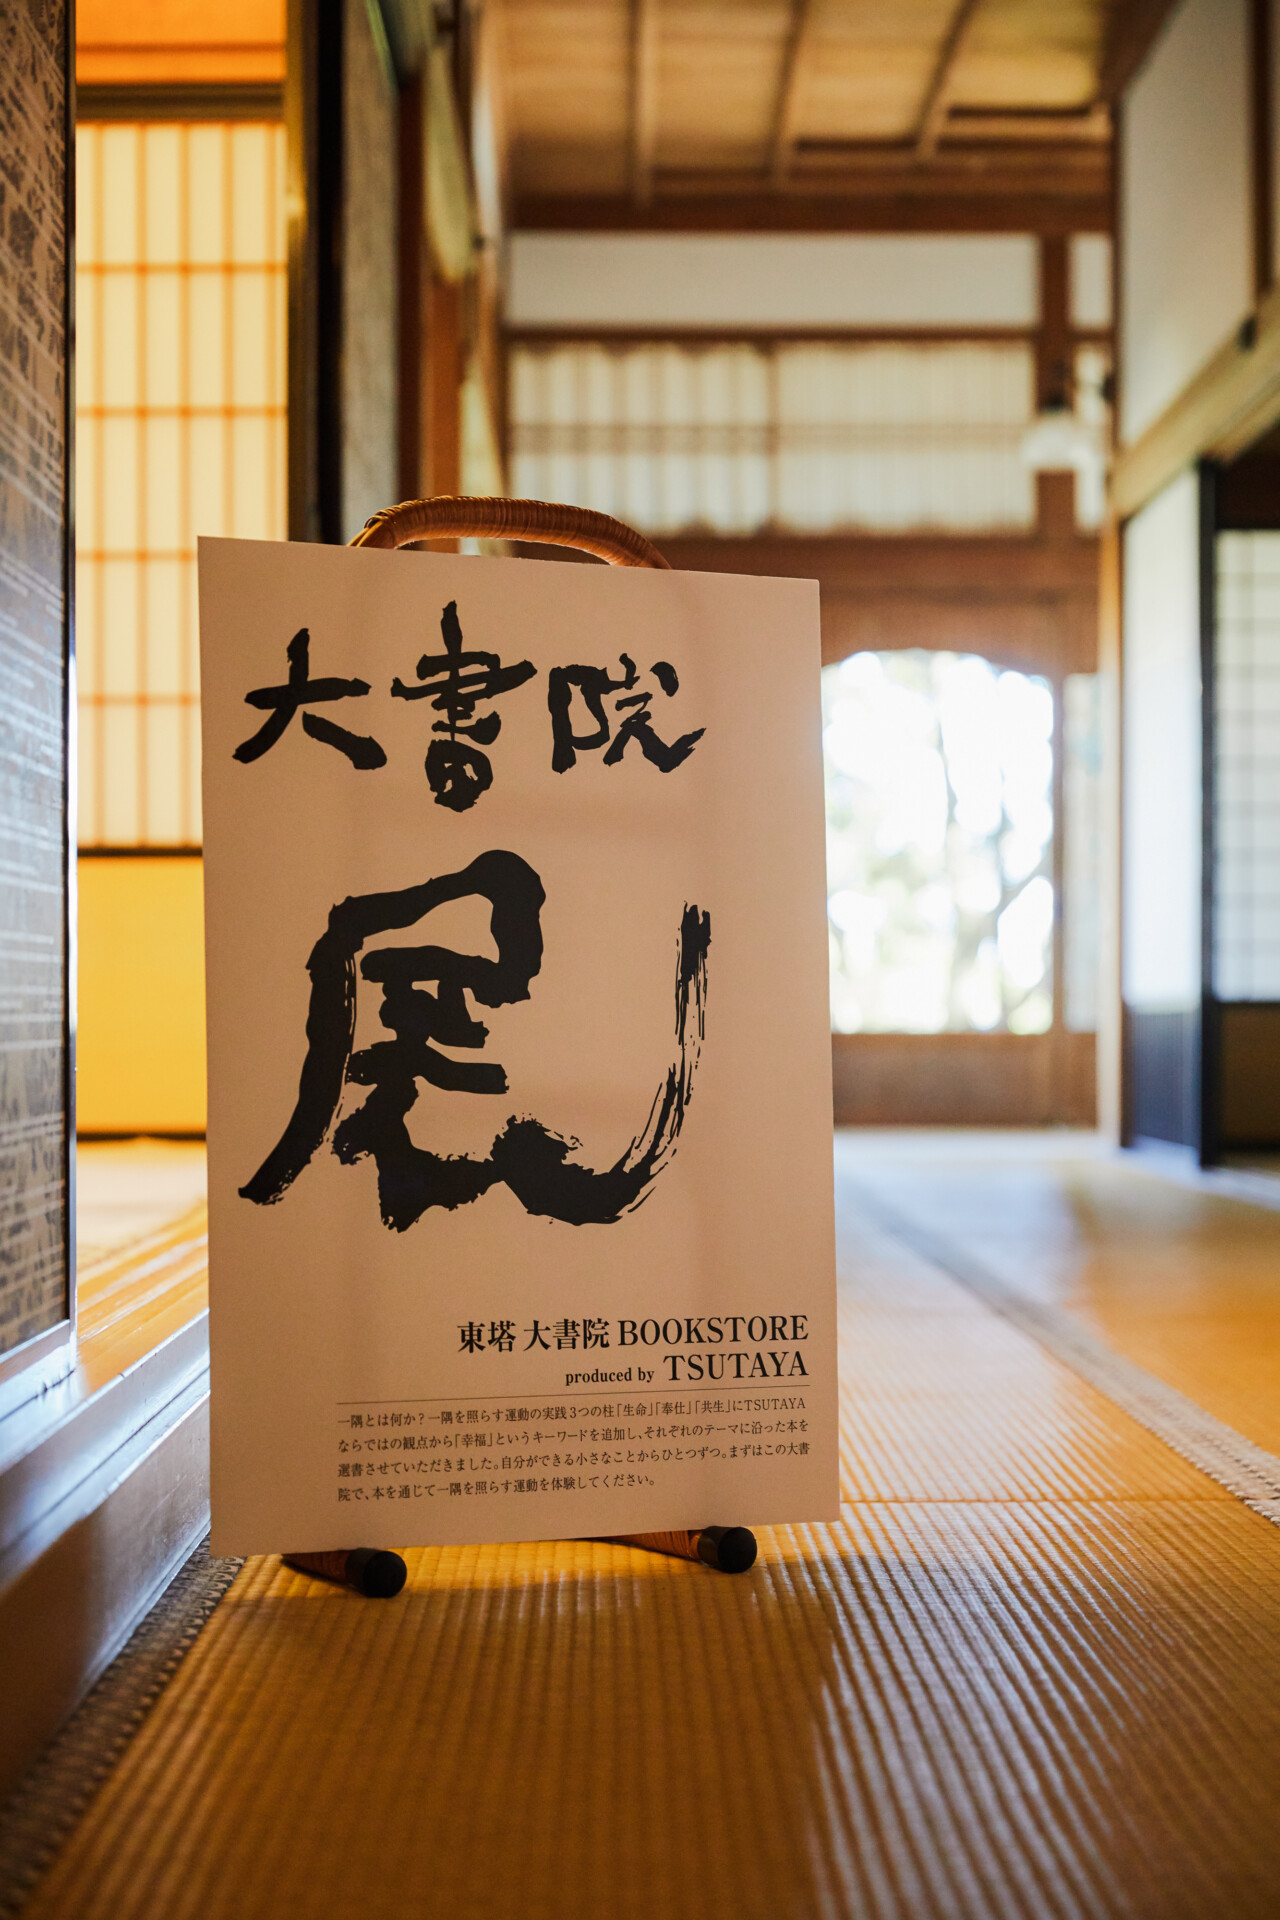 大書院
展
東塔 大書院 BOOKSTORE
produced by TSUTAYA
一隅とは何か？一隅を照らす運動の実践3つの柱「生命」「奉仕」「共生」にTSUTAYA
ならではの観点から「幸福」というキーワードを追加し、それぞれのテーマに沿った本を
選書させていただきました。自分ができる小さなことからひとつずつ。まずはこの大書
院で、本を通じて一隅を照らす運動を体験してください。